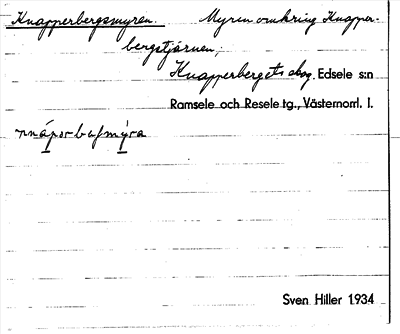 Knapperbergsmyren. Myren omkring Knapper-
bergstjärnen,
Knapperbergets skog. Edsele s:n
Ramsele och Resele tg., Västernorrl. l.
Sven Hiller 1934